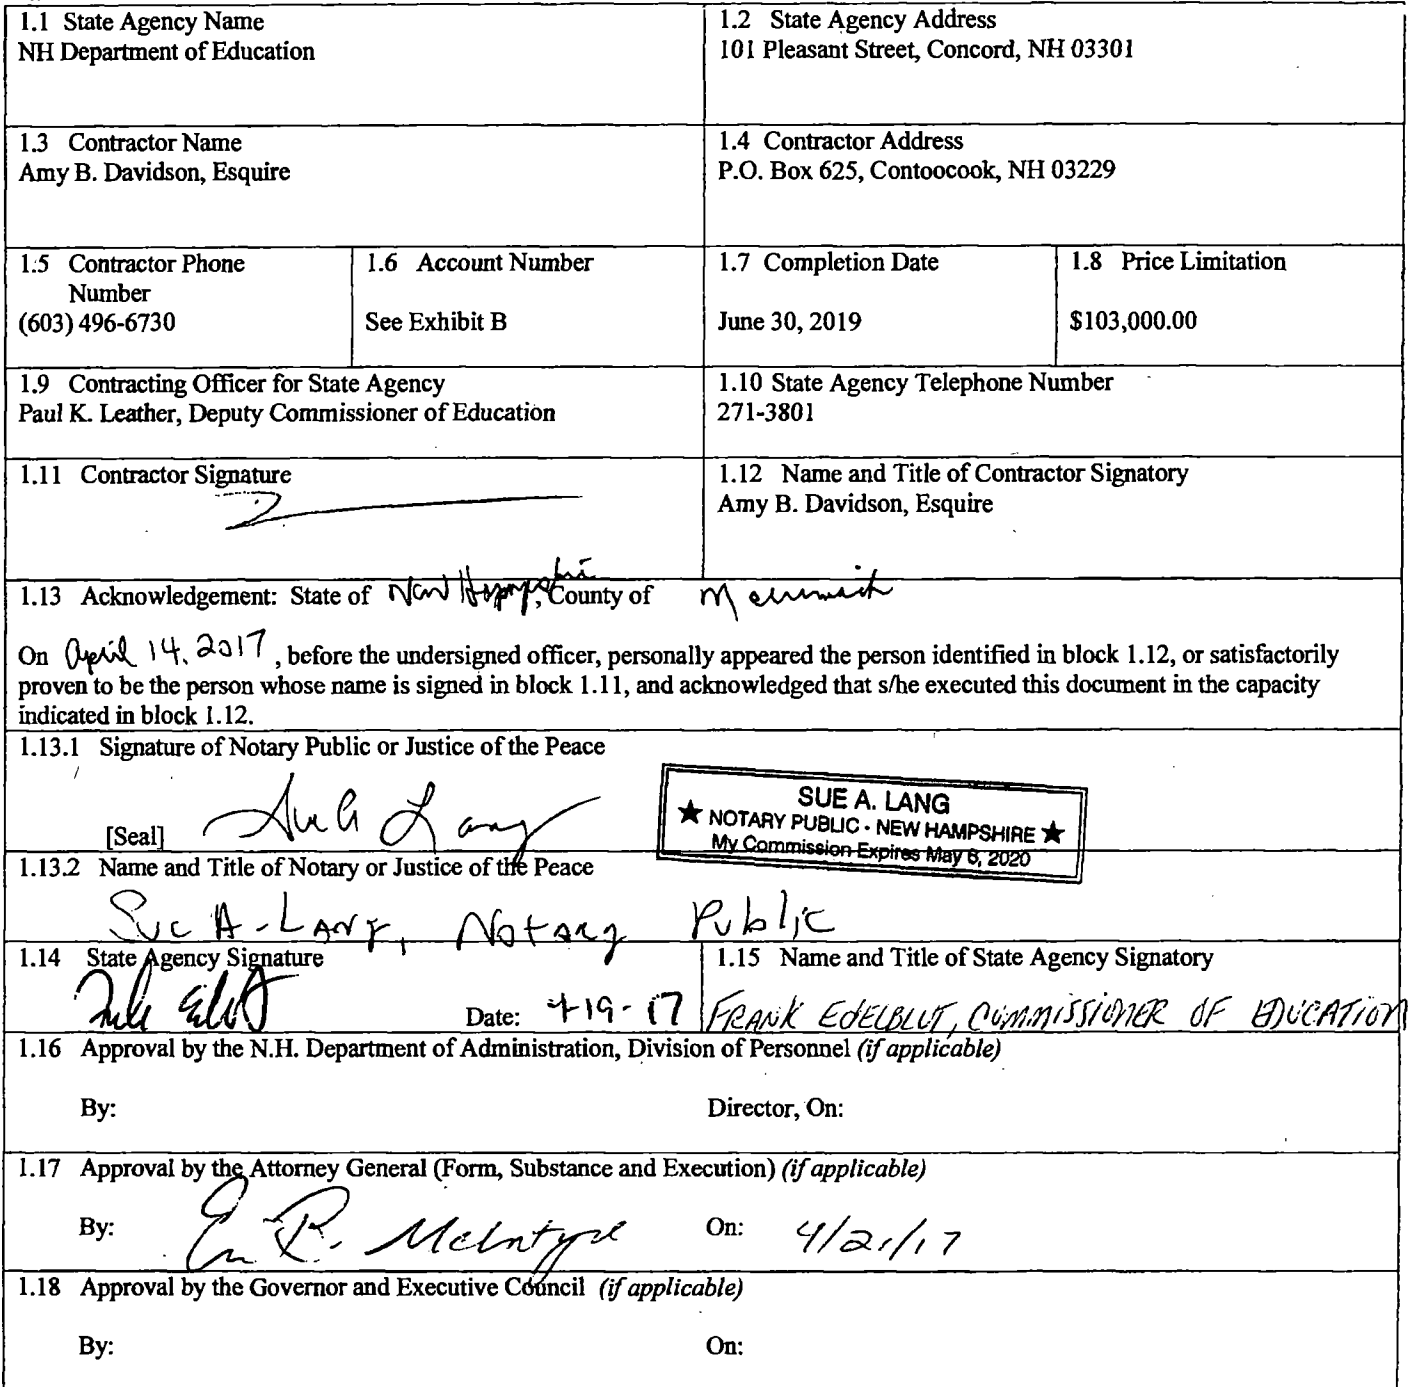 1.1 State Agency Name
NH Department of Education
1.2 State Agency Address
101 Pleasant Street, Concord, NH 03301
1.3 Contractor Name
Amy B. Davidson, Esquire
1.4 Contractor Address
P.O. Box 625, Contoocook, NH 03229
1.5 Contractor Phone
Number
(603) 496-6730
1.6 Account Number
See Exhibit B
1.7 Completion Date
June 30, 2019
1.8 Price Limitation
$103,000.00
1.9 Contracting Officer for State Agency
Paul K. Leather, Deputy Commissioner of Education
1.10 State Agency Telephone Number
271-3801
1.11 Contractor Signature
1.12 Name and Title of Contractor Signatory
Amy B. Davidson, Esquire
1.13 Acknowledgement: State of New Hampshire, County of Merrimack
On April 14, 2017, before the undersigned officer, personally appeared the person identified in block 1.12, or satisfactorily
proven to be the person whose name is signed in block 1.11, and acknowledged that s/he executed this document in the capacity
indicated in block 1.12.
1.13.1 Signature of Notary Public or Justice of the Peace
[Seal] Sue A Lang
SUE A. LANG
★ NOTARY PUBLIC - NEW HAMPSHIRE ★
My Commission Expires May 6, 2020
1.13.2 Name and Title of Notary or Justice of the Peace
Sue A. Lang, Notary Public
1.14 State Agency Signature
Date: 4-19-17
1.15 Name and Title of State Agency Signatory
FRANK EDELBLUT, COMMISSIONER OF EDUCATION
1.16 Approval by the N.H. Department of Administration, Division of Personnel (if applicable)
By: Director, On:
1.17 Approval by the Attorney General (Form, Substance and Execution) (if applicable)
By: R. McIntyre On: 4/21/17
1.18 Approval by the Governor and Executive Council (if applicable)
By: On: